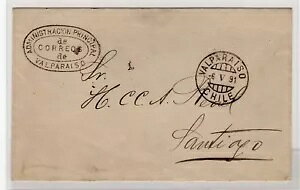 ADMINISTRACION PRINCIPAL
de
CORREOS
de
VALPARAISO
VALPARAISO
6 V 91
CHILE
Sr.
H. C. C. A.
Santiago